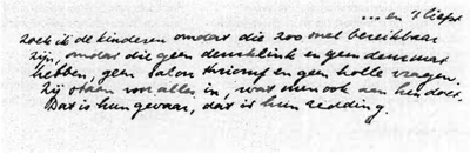 ... en 's liefst
zoek ik de kinderen omdat die zoo snel bereikbaar
zijn, omdat die geen deurklink en geen deurmat
hebben, geen Salon triomf en geen holle vragen.
Zij staan voor alles in, wat men ook aan hen doet.
Dat is hun gevaar, dat is hun redding.